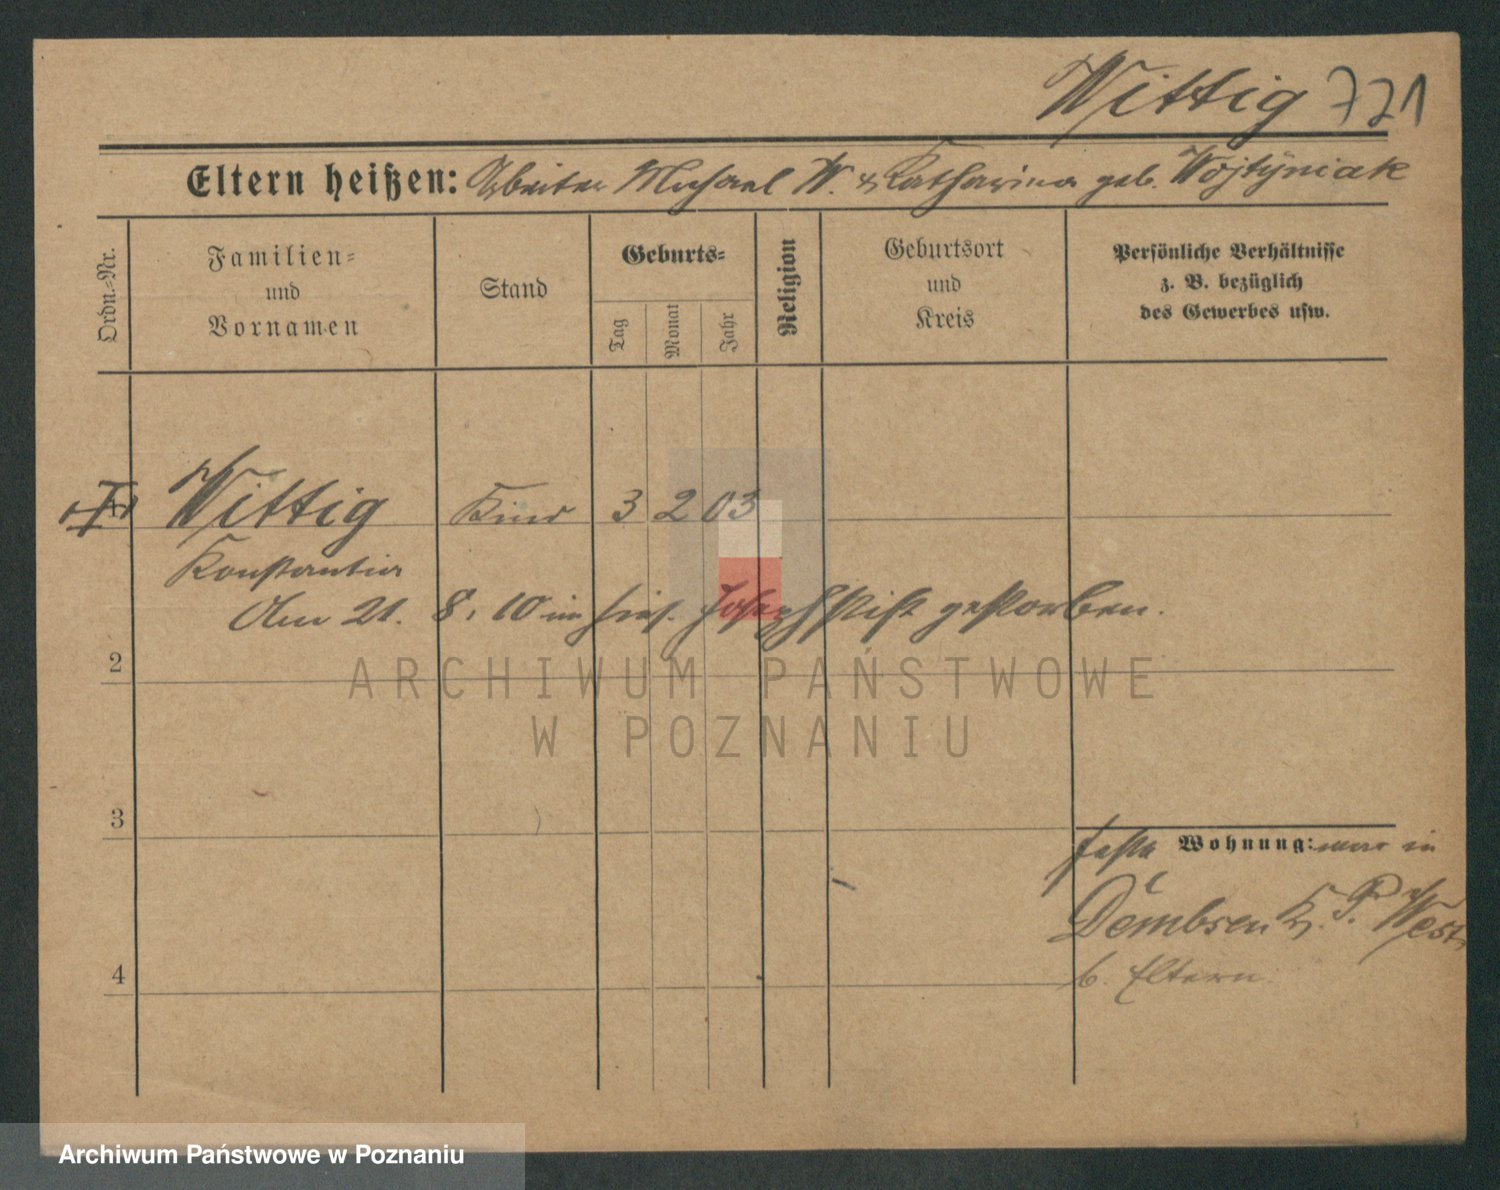 Wittig 721
Eltern heißen: Arbeiter Michael W. & Katharina geb. Wojtyniak
Ordn.=Nr.
Familien=
und
Vornamen
Stand
Geburts=
Tag
Monat
Jahr
Religion
Geburtsort
und
Kreis
Persönliche Verhältnisse
z. B. bezüglich
des Gewerbes usw.
Wittig Kind 3 2 03
Konstantin
Am 21. 8. 10 im hies. Josephstift gestorben.
2
ARCHIWUM PAŃSTWOWE
W POZNANIU
3
feste Wohnung: war in
Dembsen K. P. West
b. Eltern.
4
Archiwum Państwowe w Poznaniu